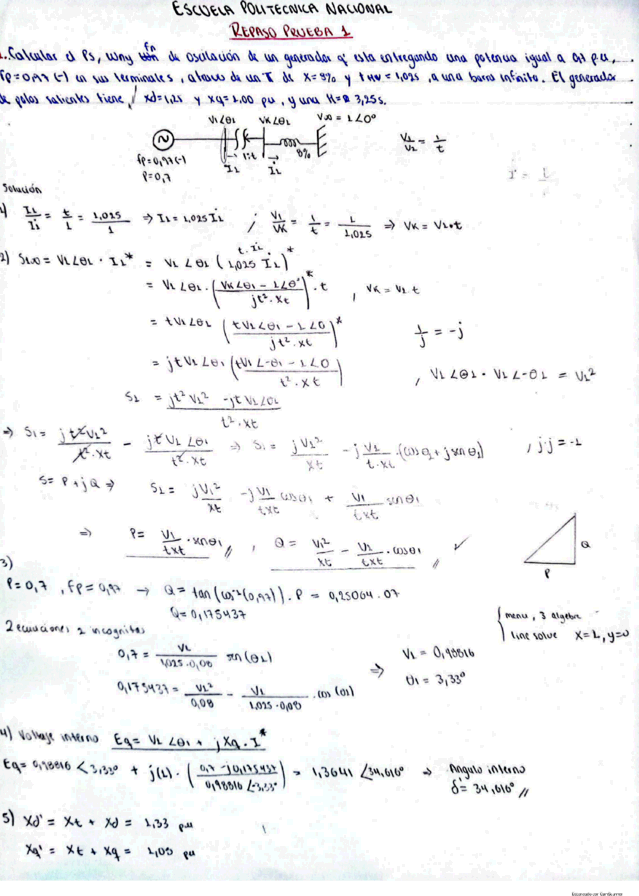 ESCUELA POLITECNICA NACIONAL
REPASO PRUEBA 1
1. Calcular el Ps, Wn y fn de oscilación de un generador q' esta entregando una potencia igual a 0,7 pu,
fp=0,97 (-) en sus terminales, a traves de un T de X=8% y t HV=1,025, a una barra infinita. El generador
de polos salientes tiene, xd=1,25 y xq=1.00 pu, y una H= 3,25s.
V1∠θ1 VK∠θ1 V∞ = 1∠0°
1:t 8%
fp=0,97(-)
P=0,7
I1 I2
V1/V2 = 1/t
Solución
1) I1/I2 = t/1 = 1,025/1 ⇒ I1 = 1,025 I2 ; V1/VK = 1/t = 1/1,025 ⇒ VK = V1·t
2) S1∞ = V1∠θ1 · I1* = V1∠θ1 (1,025 I2)* t·I2
= V1∠θ1 · ((VK∠θ1 - 1∠0°)/(jt²·Xt))* · t , VK = V1 t
= tV1∠θ1 ((tV1∠θ1 - 1∠0)/(jt²·Xt))* 1/j = -j
= jtV1∠θ1 ((tV1∠-θ1 - 1∠0)/(t²·Xt)) , V1∠θ1 · V1∠-θ1 = V1²
S1 = (jt²V1² - jtV1∠θ1)/(t²·Xt)
⇒ S1 = jt²V1²/(t²·Xt) - jtV1∠θ1/(t²·Xt) ⇒ S1 = jV1²/Xt - j V1/(t·Xt) (cosθ1 + jsenθ1) , j·j = -1
S = P + jQ ⇒ S1 = jV1²/Xt - jV1/(tXt) cosθ1 + V1/(tXt) senθ1
⇒ P = V1/(tXt) · senθ1 // , Q = V1²/Xt - V1/(tXt) · cosθ1 // ✓
Q
P
3)
P=0,7 , fp=0,97 → Q = tan(cos⁻¹(0,97)) . P = 0,25064 . 07
Q=0,175437
2 ecuaciones 2 incognitas
menu, 3 algebra
line solve X=1, y=0
0,7 = V1/(1,025·0,08) sen(θ1)
⇒ V1 = 0,98816
θ1 = 3,33°
0,175437 = V1²/0,08 - V1/(1.025·0,08) . cos(θ1)
4) Voltaje interno Eq = V1∠θ1 + jXq · I*
Eq = 0,98816 ∠3,33° + j(1) · ((0,7 - j0,175437)/(0,98816 ∠-3,33°)) = 1,3641 ∠34,616° ⇒ Angulo interno
δ' = 34,616° //
5) Xd' = Xt + Xd = 1,33 pu
Xq' = Xt + Xq = 1,08 pu
Escaneado con CamScanner